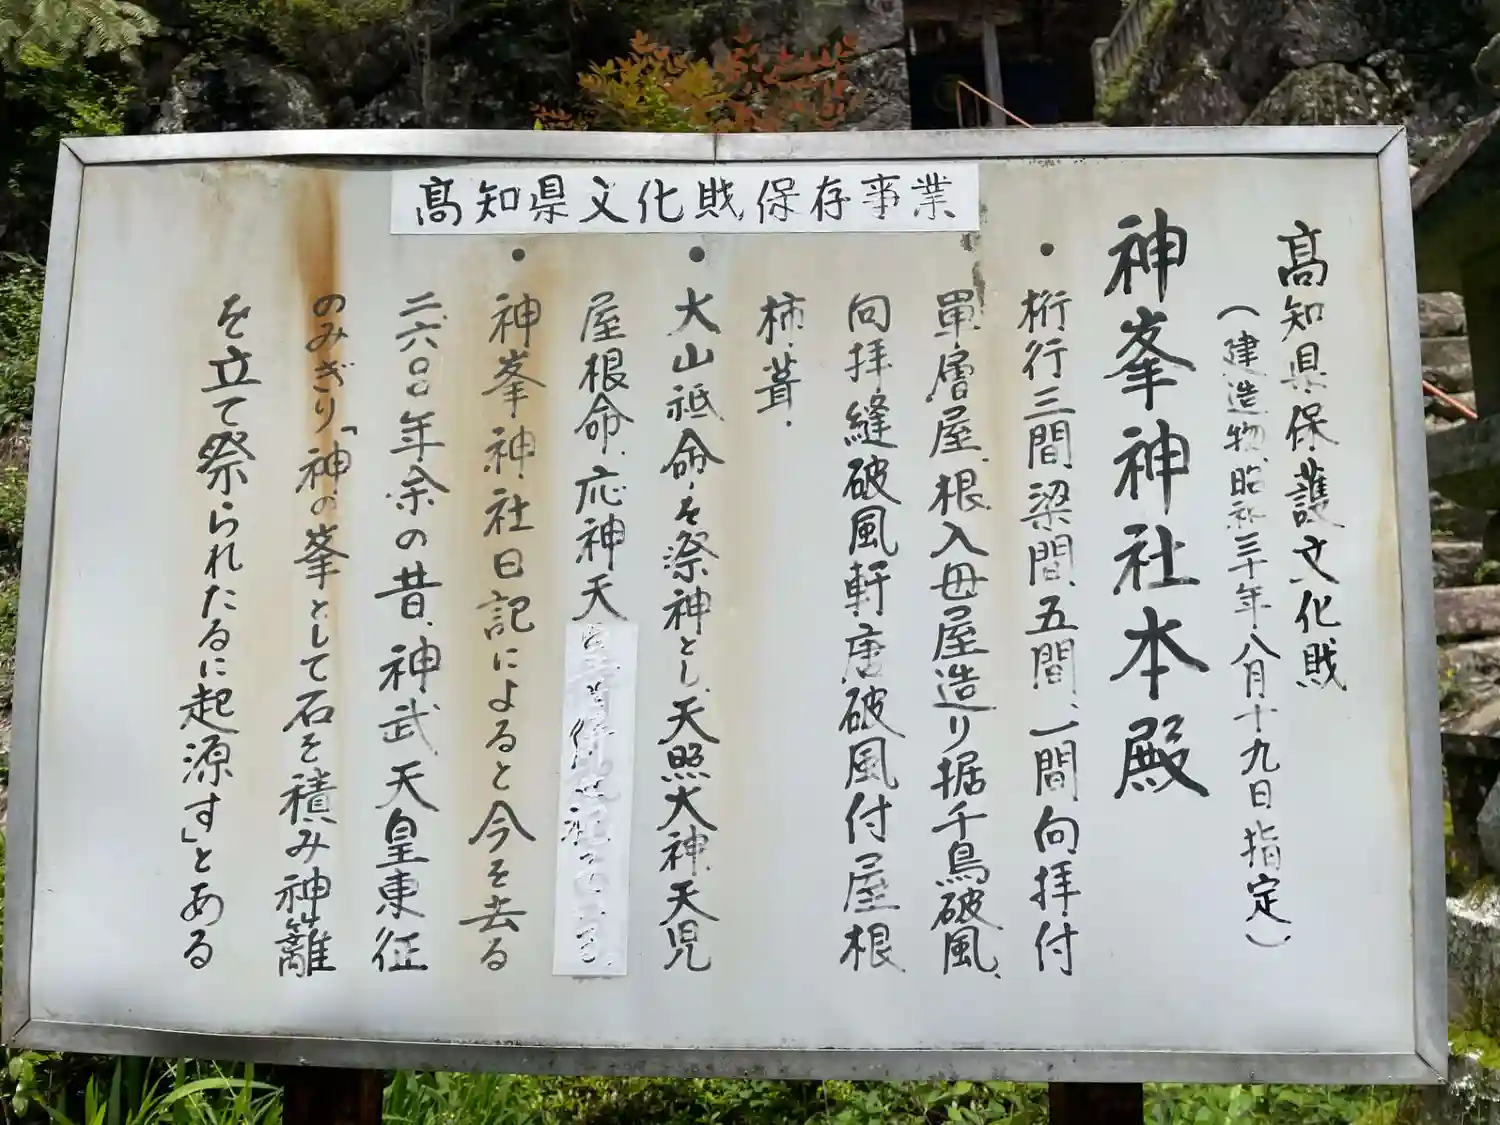 高知県文化財保存事業
高知県保護文化財
(建造物、昭和三十年八月十九日指定)
神峯神社本殿
・桁行三間、梁間、五間、一間向拝付
単層屋根入母屋造り据千鳥破風、
向拝縫破風軒唐破風付屋根
柿葺.
・大山祗命を祭神とし、天照大神、天児
屋根命、応神天皇
・神峯神社日記によると今を去る
二、六〇〇年余の昔、神武天皇東征
のみぎり「神の峯として石を積み神籬
を立て祭られたるに起源す」とある